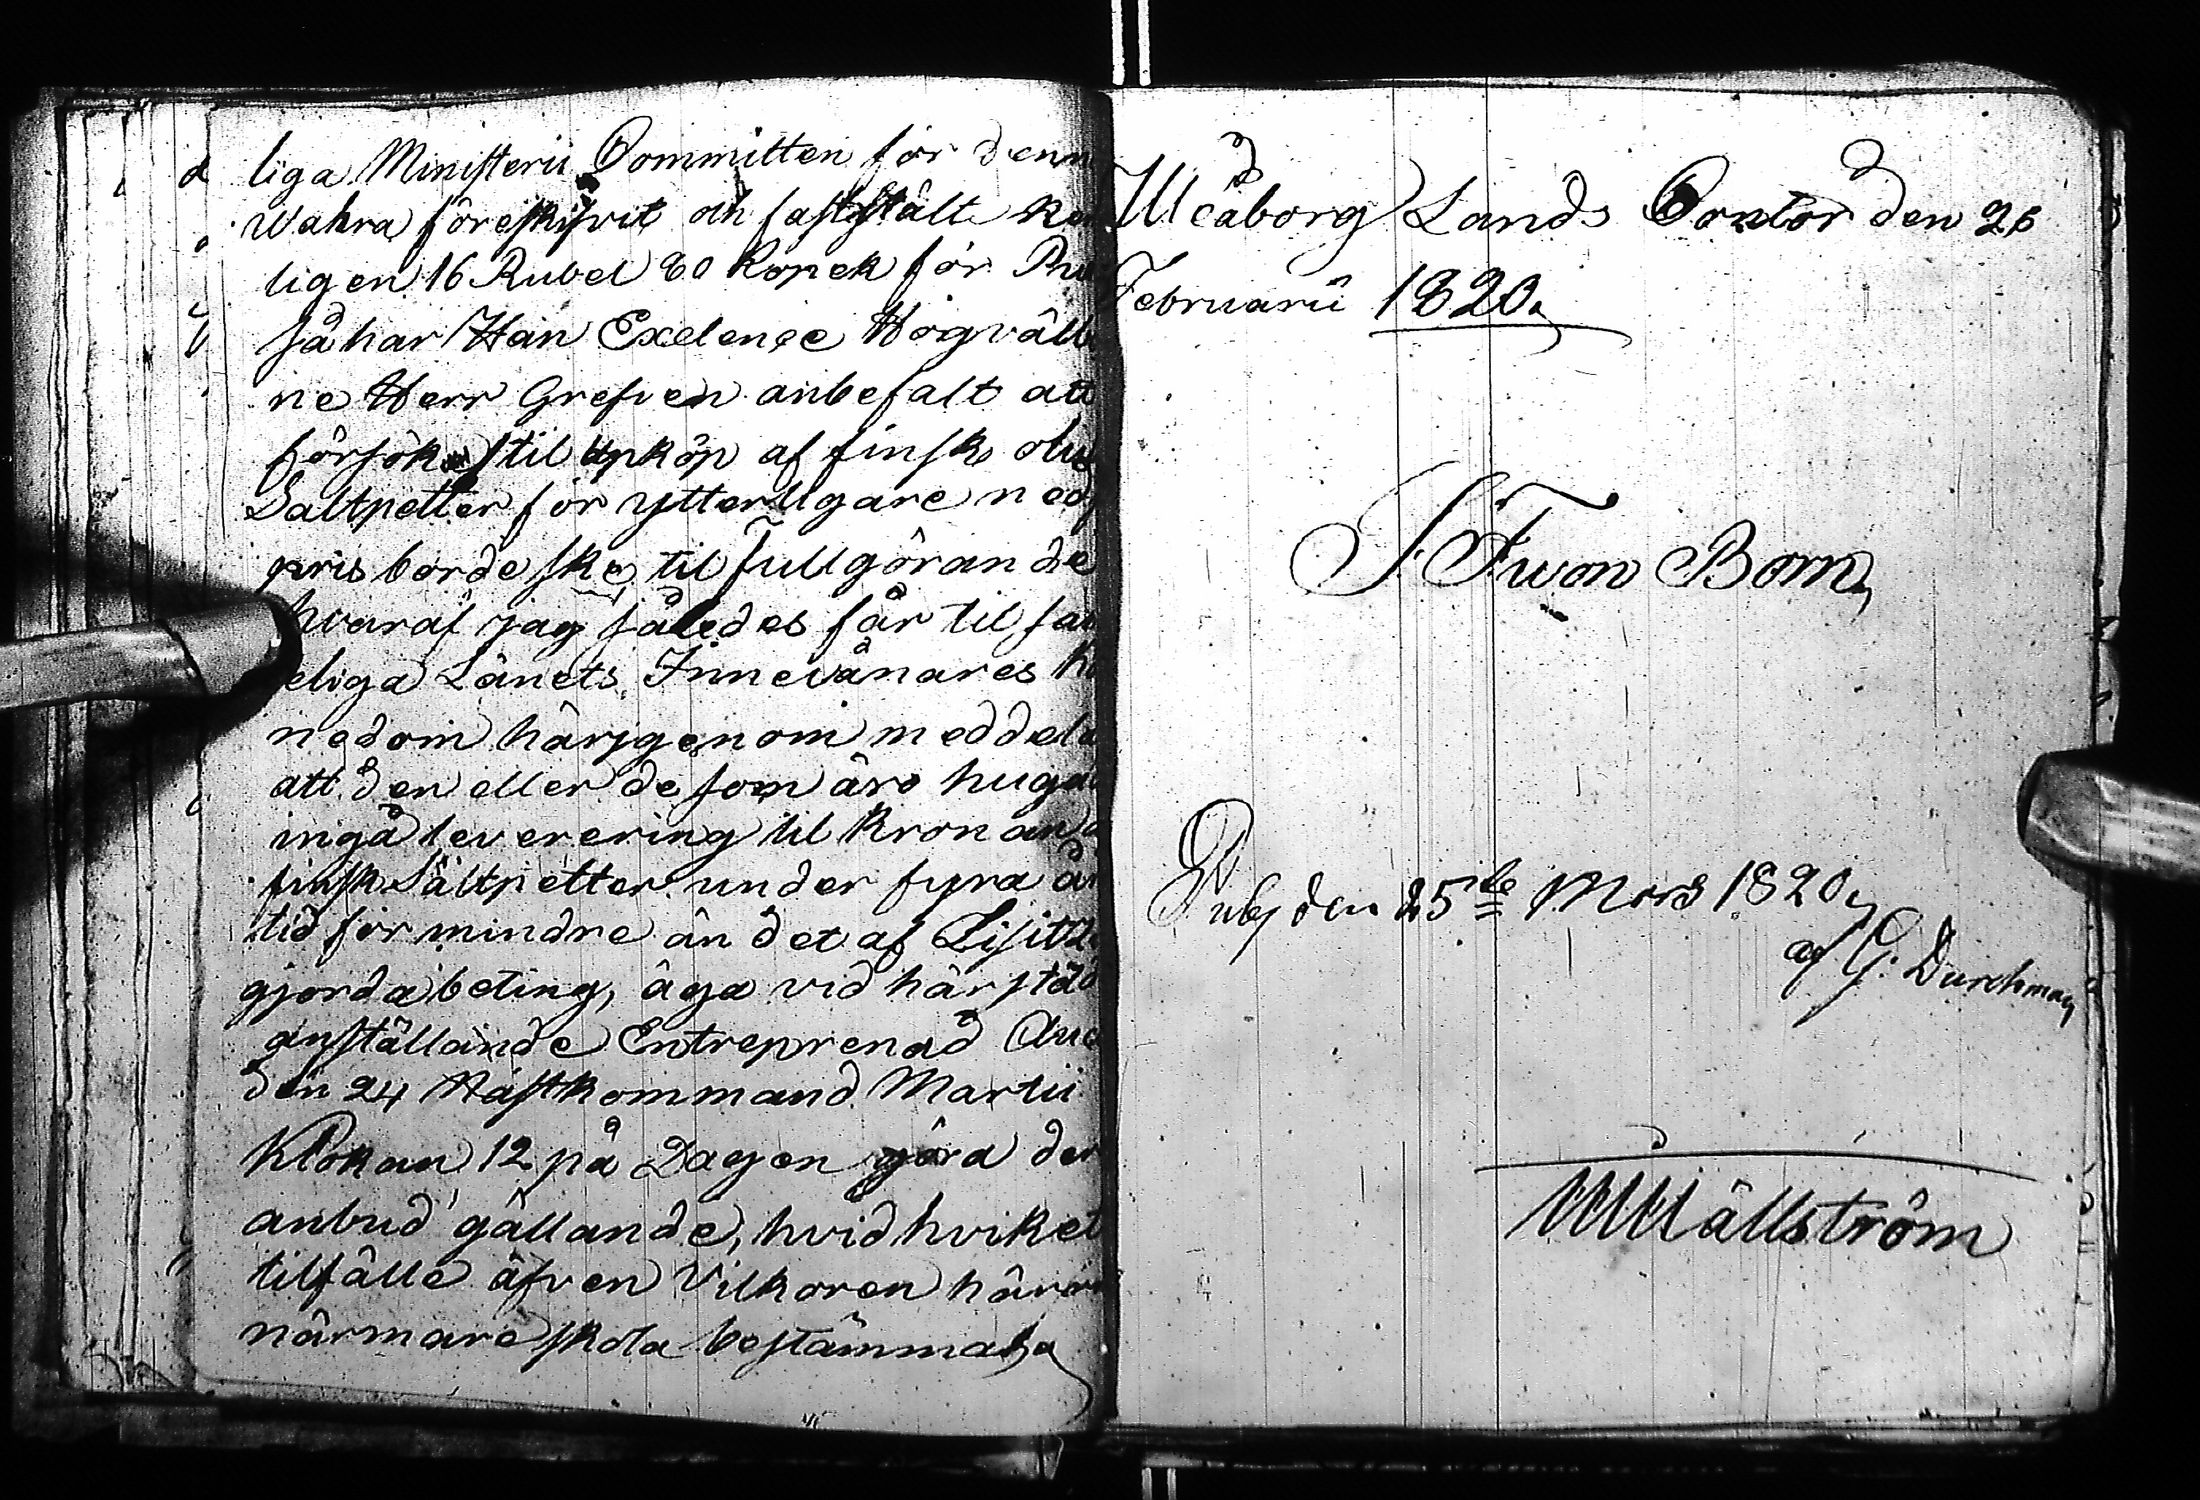 liga Ministerii Committen för denn
Wahra föreskifvit och fastställt ko
ligen 16 Rubel 80 Kopek för Pu
så har Han Exelençe Högvälb
ne Herr Grefven anbefalt att
försök til upköp af finsk
Saltpetter för ytterligare ned
pris borde ske, til fullgörande
hvaraf jag således får til sam
eliga Länets Innevånares k
nedom härigenom meddela
att den eller de som äro huga
ingå leverering til Kronan a
finsk Saltpetter under fyra år
tid för mindre än det af
gjorda beting, äga vid härstäd
anställande Entreprenad Auc
den 24 Nästkommand Martii
Klokan 12 på Dagen göra der
anbud gällande, hvid hvilket
tilfälle äfven Vilkoren häröf
närmare skola bestämmas
Uleåborg Lands Contor den 26
Februarii 1820.
S. F. von Born
Publ den 25te Mars 1820.
af G: Durchman
Wällström